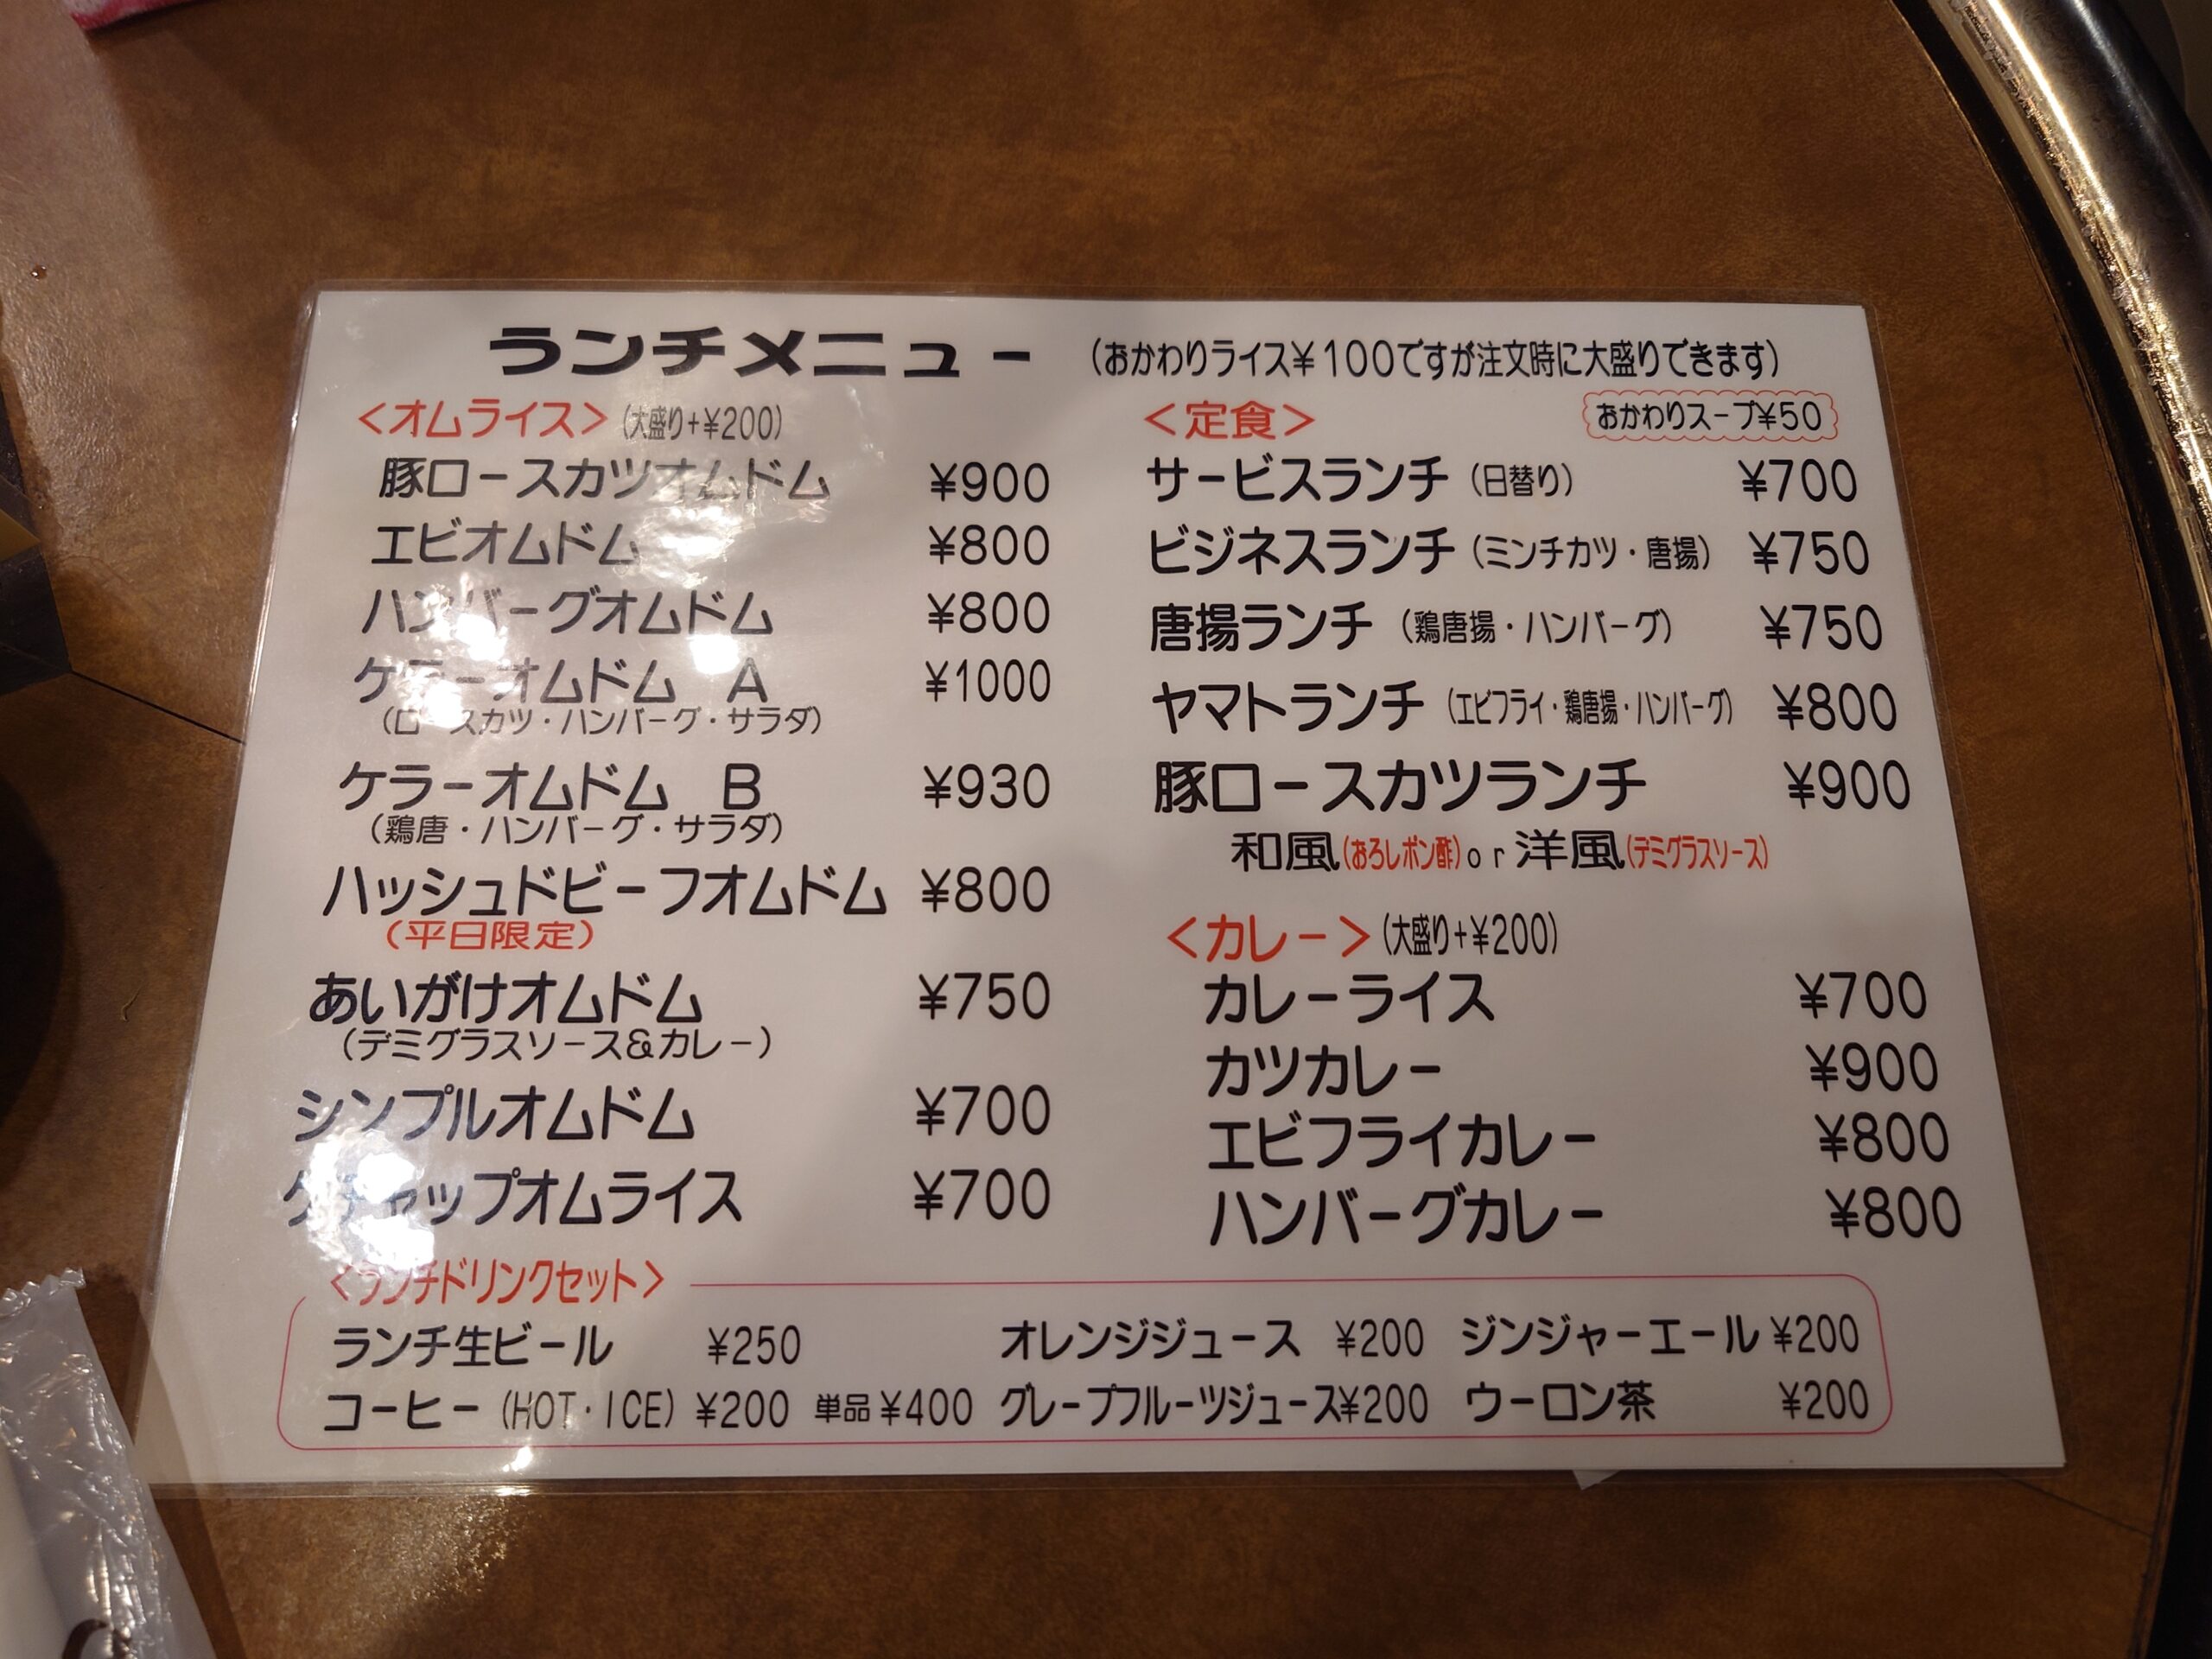 ランチメニュー (おかわりライス¥100ですが注文時に大盛りできます)
<オムライス>(大盛り+¥200)
豚ロースカツオムドム ¥900
エビオムドム ¥800
ハンバーグオムドム ¥800
ケラーオムドム A ¥1000
(ロースカツ・ハンバーグ・サラダ)
ケラーオムドム B ¥930
(鶏唐・ハンバーグ・サラダ)
ハッシュドビーフオムドム ¥800
(平日限定)
あいがけオムドム ¥750
(デミグラスソース&カレー)
シンプルオムドム ¥700
ケチャップオムライス ¥700
<定食> おかわりスープ¥50
サービスランチ (日替り) ¥700
ビジネスランチ (ミンチカツ・唐揚) ¥750
唐揚ランチ (鶏唐揚・ハンバーグ) ¥750
ヤマトランチ (エビフライ・鶏唐揚・ハンバーグ) ¥800
豚ロースカツランチ ¥900
和風(おろしポン酢)or洋風(デミグラスソース)
<カレー>(大盛り+¥200)
カレーライス ¥700
カツカレー ¥900
エビフライカレー ¥800
ハンバーグカレー ¥800
<ランチドリンクセット>
ランチ生ビール ¥250 オレンジジュース ¥200 ジンジャーエール ¥200
コーヒー (HOT・ICE) ¥200 単品¥400 グレープフルーツジュース¥200 ウーロン茶 ¥200